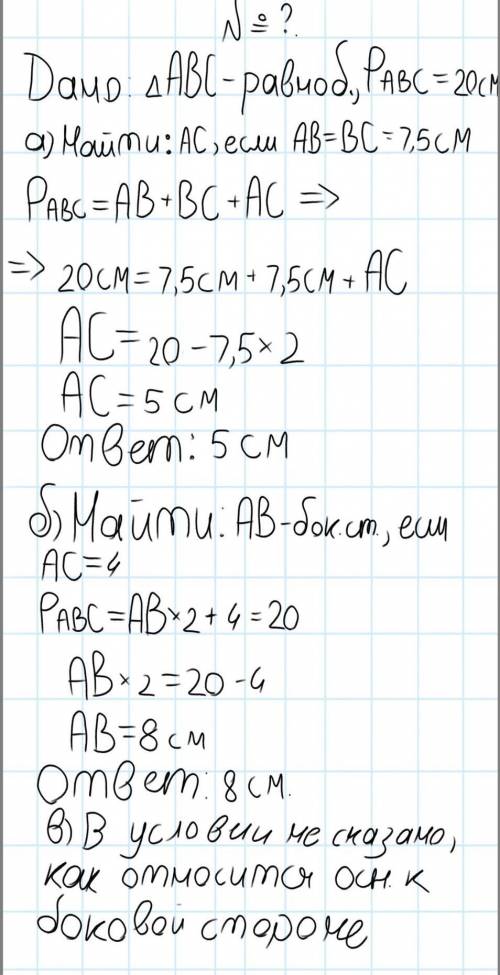 № ?
Дано: △ABC-равноб., PABC=20см
а) Найти: AC, если AB=BC=7,5см
PABC=AB+BC+AC =>
=> 20см=7,5см+7,5см+AC
AC=20-7,5×2
AC=5см
Ответ: 5см
б) Найти: AB-бок.ст., если
AC=4
PABC=AB×2+4=20
AB×2=20-4
AB=8см
Ответ: 8см.
в) В условии не сказано,
как относится осн. к
боковой стороне